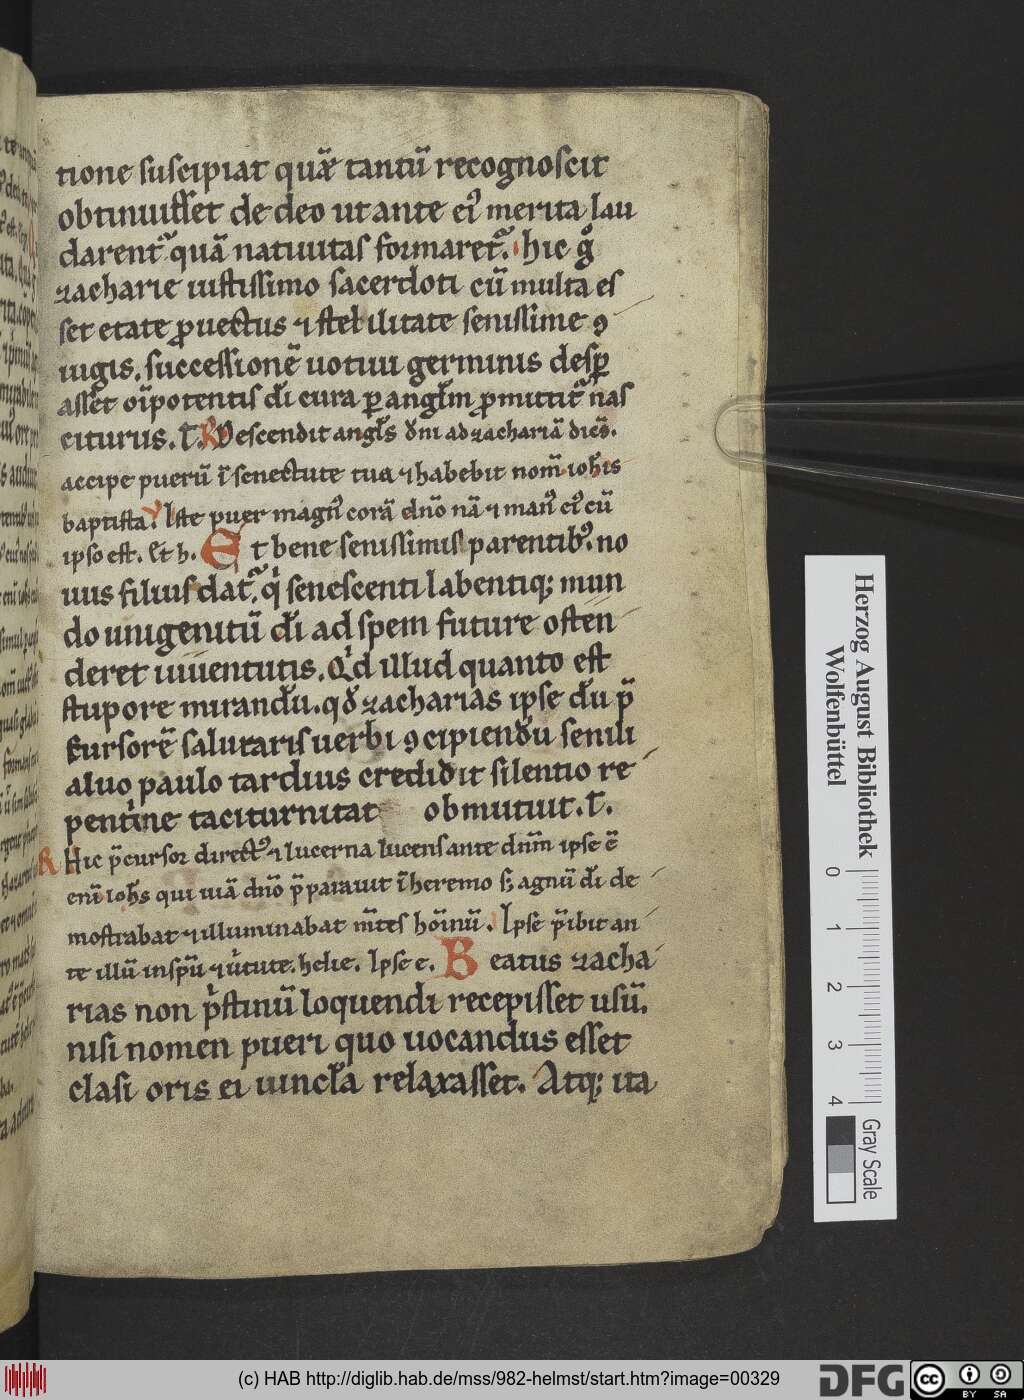 tione suscipiat quā tantū recognoscit
obtinuisset de deo ut ante ei merita lau
darent quā natiuitas formaret. hic g
zacharie iustissimo sacerdoti cū multa es
set etate ꝓuectus ⁊ sterilitate senissime ꝯ
iugis. successionē uotiui germinis desꝑ
asset oīpotentis dī cura ꝑ anglm ꝓmittit nas
citurus. T. R Descendit angls dni ad zachariā dicē.
accipe puerū ī senectute tua ⁊ habebit nom̄ iohis
baptista. V Iste puer magn corā dno nā ⁊ man ei cū
ipso est. Et h. Et bene senissimis parentib. no
uus filius dat. q senescenti labentiq; mun
do unigenitū dī ad spem future osten
deret iuuentutis. Qd illud quanto est
stupore mirandu. qd zacharias ipse du p̄
cursorē salutaris uerbi ꝯcipiendu senili
aluo paulo tardius credidit silentio re
pentine taciturnitat obmutuit. T.
R Hic p̄cursor direct ⁊ lucerna lucens ante dn̄m ipse ē
enī iohs qui uiā dno p̄parauit ī heremo s; agnū dī de
mostrabat ⁊ illuminabat m̄tes hoīnū. Ipse p̄ibit an
te illū in spū ⁊ uirtute. helie. Ipse e. Beatus zacha
rias non pstinū loquendi recepisset usū.
nisi nomen pueri quo uocandus esset
clasi oris ei uincla relaxasset. Atq; ita
Herzog August Bibliothek
Wolfenbüttel
0 1 2 3 4
Gray Scale
(c) HAB http://diglib.hab.de/mss/982-helmst/start.htm?image=00329
DFG
cc BY SA